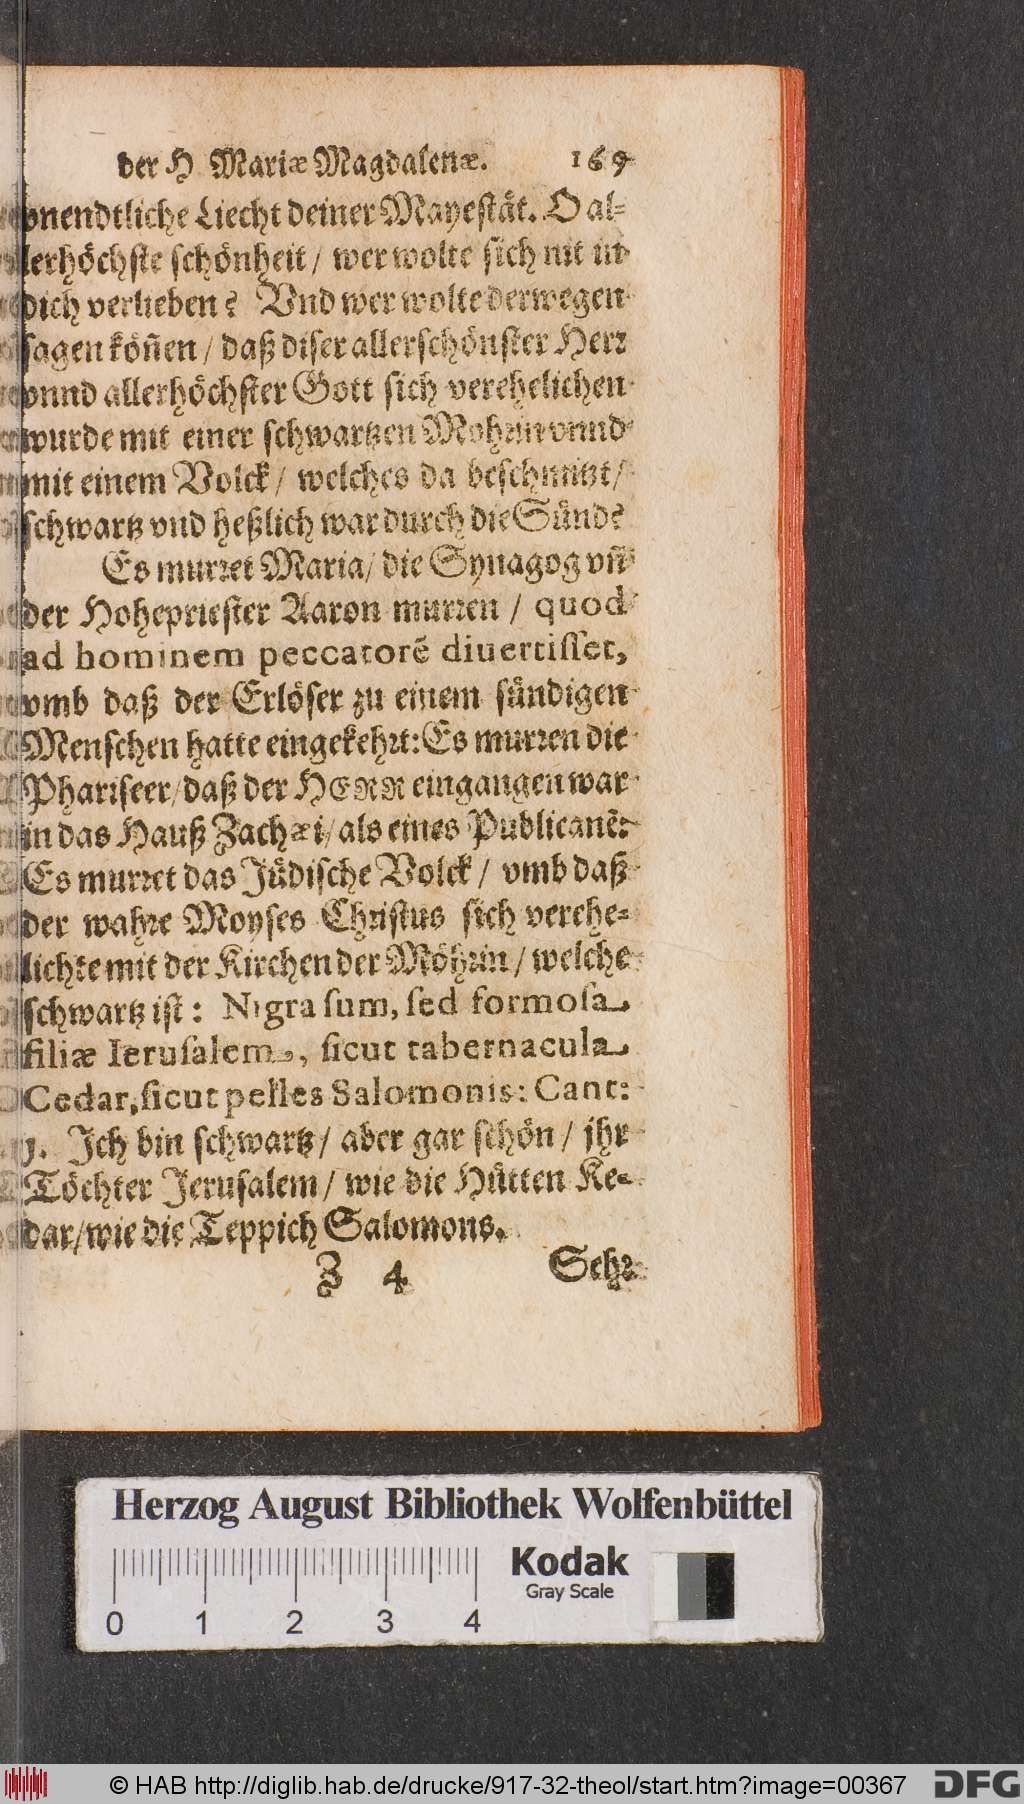 der H Mariæ Magdalenæ. 169
vnendtliche Liecht deiner Mayestät. O al-
lerhöchste schönheit / wer wolte sich nit in
dich verlieben? Vnd wer wolte derwegen
sagen köñen / daß diser allerschönster Herr
vnnd allerhöchster Gott sich verehelichen
wurde mit einer schwartzen Mohrin vnnd
mit einem Volck / welches da beschmitzt /
schwartz vnd heßlich war durch die Sünd?
Es murret Maria / die Synagog vñ
der Hohepriester Aaron murren / quod
ad hominem peccatorē diuertisset,
vmb daß der Erlöser zu einem sündigen
Menschen hatte eingekehrt: Es murren die
Phariseer / daß der HERR eingangen war
in das Hauß Zachæi / als eines Publicanē:
Es murret das Jüdische Volck / vmb daß
der wahre Moyses Christus sich verehe-
lichte mit der Kirchen der Möhrin / welche
schwartz ist: Nigra sum, sed formosa
filiæ Ierusalem, sicut tabernacula
Cedar, sicut pelles Salomonis: Cant:
1. Ich bin schwartz / aber gar schön / jhr
Töchter Jerusalem / wie die Hütten Ke-
dar / wie die Teppich Salomons.
Z 4 Sehr
Herzog August Bibliothek Wolfenbüttel
Kodak
Gray Scale
0 1 2 3 4
© HAB http://diglib.hab.de/drucke/917-32-theol/start.htm?image=00367 DFG